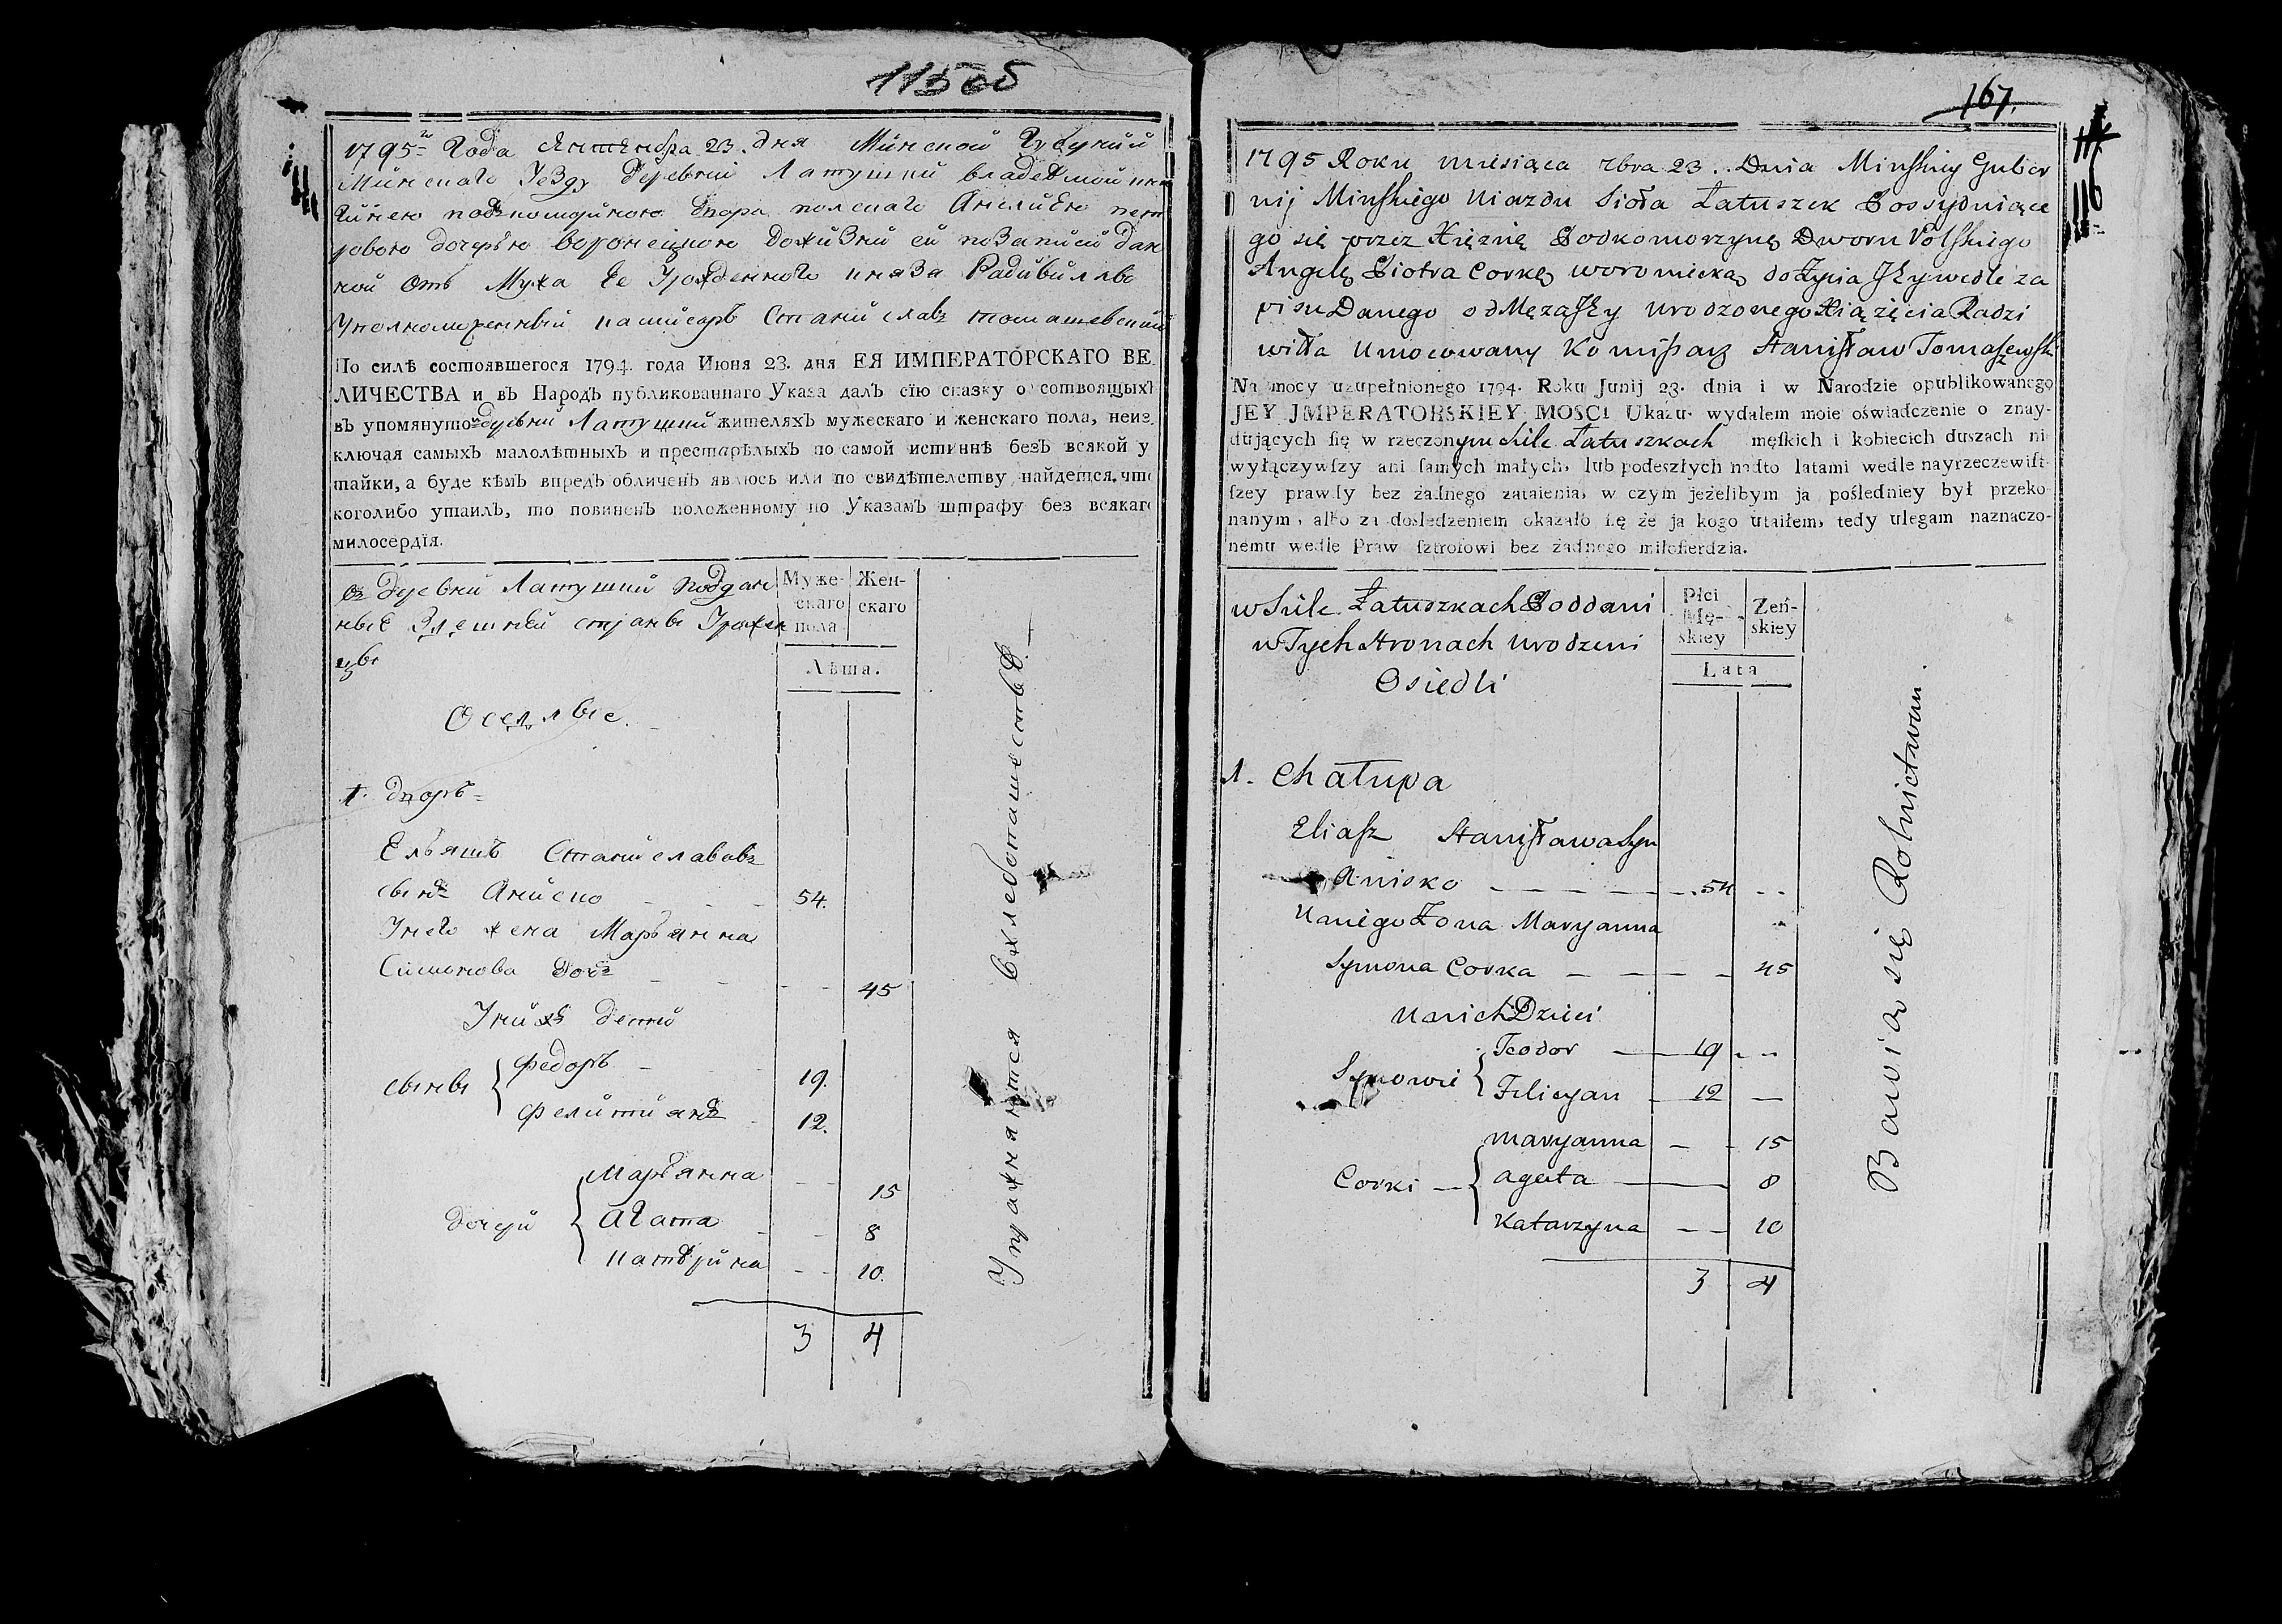 115об
1795го Года Сентебра 23. дня Минской Губернии
Минскаго Уезду Деревни Латушки владемой кня
гинею подкоморииною двора полскаго Анелиею пет
ровою дочерью воронецкою дожизни ей по записи дан
ной отъ Мужа Ее Урожденнаго князя Радивила
Уполномоченный комисаръ Станиславъ томашевский
По силѣ состоявшегося 1794. года Июня 23. дня ЕЯ ИМПЕРАТОРСКАГО ВЕ
ЛИЧЕСТВА и въ Народъ публикованнаго Указа далъ сїю сказку о состоящыхъ
въ упомянутой деревни Латушки жителяхъ мужескаго и женскаго пола, неиз
ключая самыхъ малолѣтныхъ и престарѣлыхъ по самой истиннѣ безъ всякой у
тайки, а буде кѣмъ впредъ обличенъ явлюсь или по свидѣтелству найдется, что
коголибо утаилъ, то повиненъ положенному по Указамъ штрафу без всякаго
милосердїя.
Въ деревни Латушки поддан
ные Здешней страны Урожен
цы
Муже-
скаго
пола
Жен-
скаго
Лѣта.
Оселлые.
1. дворъ
Ельяшъ Станиславовъ
сынъ Аниско 54.
Унего жена Марьянна
Симонова дочь 45
Унихъ дети
сыны { Федоръ 19.
Фелитиянъ 12.
дочери { Марьянна 15
Агата 8
катерина 10.
3 4
Упражняются Вхледопашестве.
167.
116
1795 Roku miesiąca 7bra 23. Dnia Minskiey Guber
nij Minskiego Uiazdu Sioła Łatuszek Possyduiące
go się przez Xiężnię Podkomorzynę Dworu Polskiego
Angelę Piotra Corkę woroniecką do Życia Jey wedle za
pisu Danego od Męża Jey urodzonego Xiążęcia Radzi
wiłła Umocowany Komissarz Stanisław Tomaszewski
Na mocy uzupełnionego 1794. Roku Junij 23. dnia i w Narodzie opublikowanego
JEY JMPERATORSKIEY MOSCI Ukazu wydałem moie oświadczenie o znay-
dujących się w rzeczonym Siele Łatuszkach męskich i kobiecich duszach ni
wyłączywszy ani samych małych, lub podeszłych nadto latami wedle nayrzeczewist-
szey prawdy bez żadnego zataienia, w czym jeżelibym ja pośledniey był przeko-
nanym, albo za dosledzeniem okazało się że ja kogo utaiłem, tedy ulegam naznaczo-
nemu wedle Praw sztrofowi bez żadnego miłosierdzia.
w Siele Łatuszkach Poddani
w Tych Stronach Urodzeni
Osiedli
Płci
Mę-
skiey
Żeń-
skiey
Lata
1. Chałupa
Eliasz Stanisława Syn
Anisko 54
Uniego Żona Maryanna
Symona Corka 45
Unich Dzieci
Synowie { Teodor 19
Felicyan 12
Corki { Maryanna 15
Agata 8
Katarzyna 10
3 4
Bawią się Rolnictwem